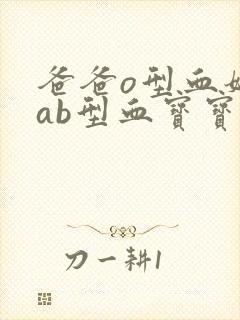 爸爸o型血
ab型血宝宝
刀一耕1